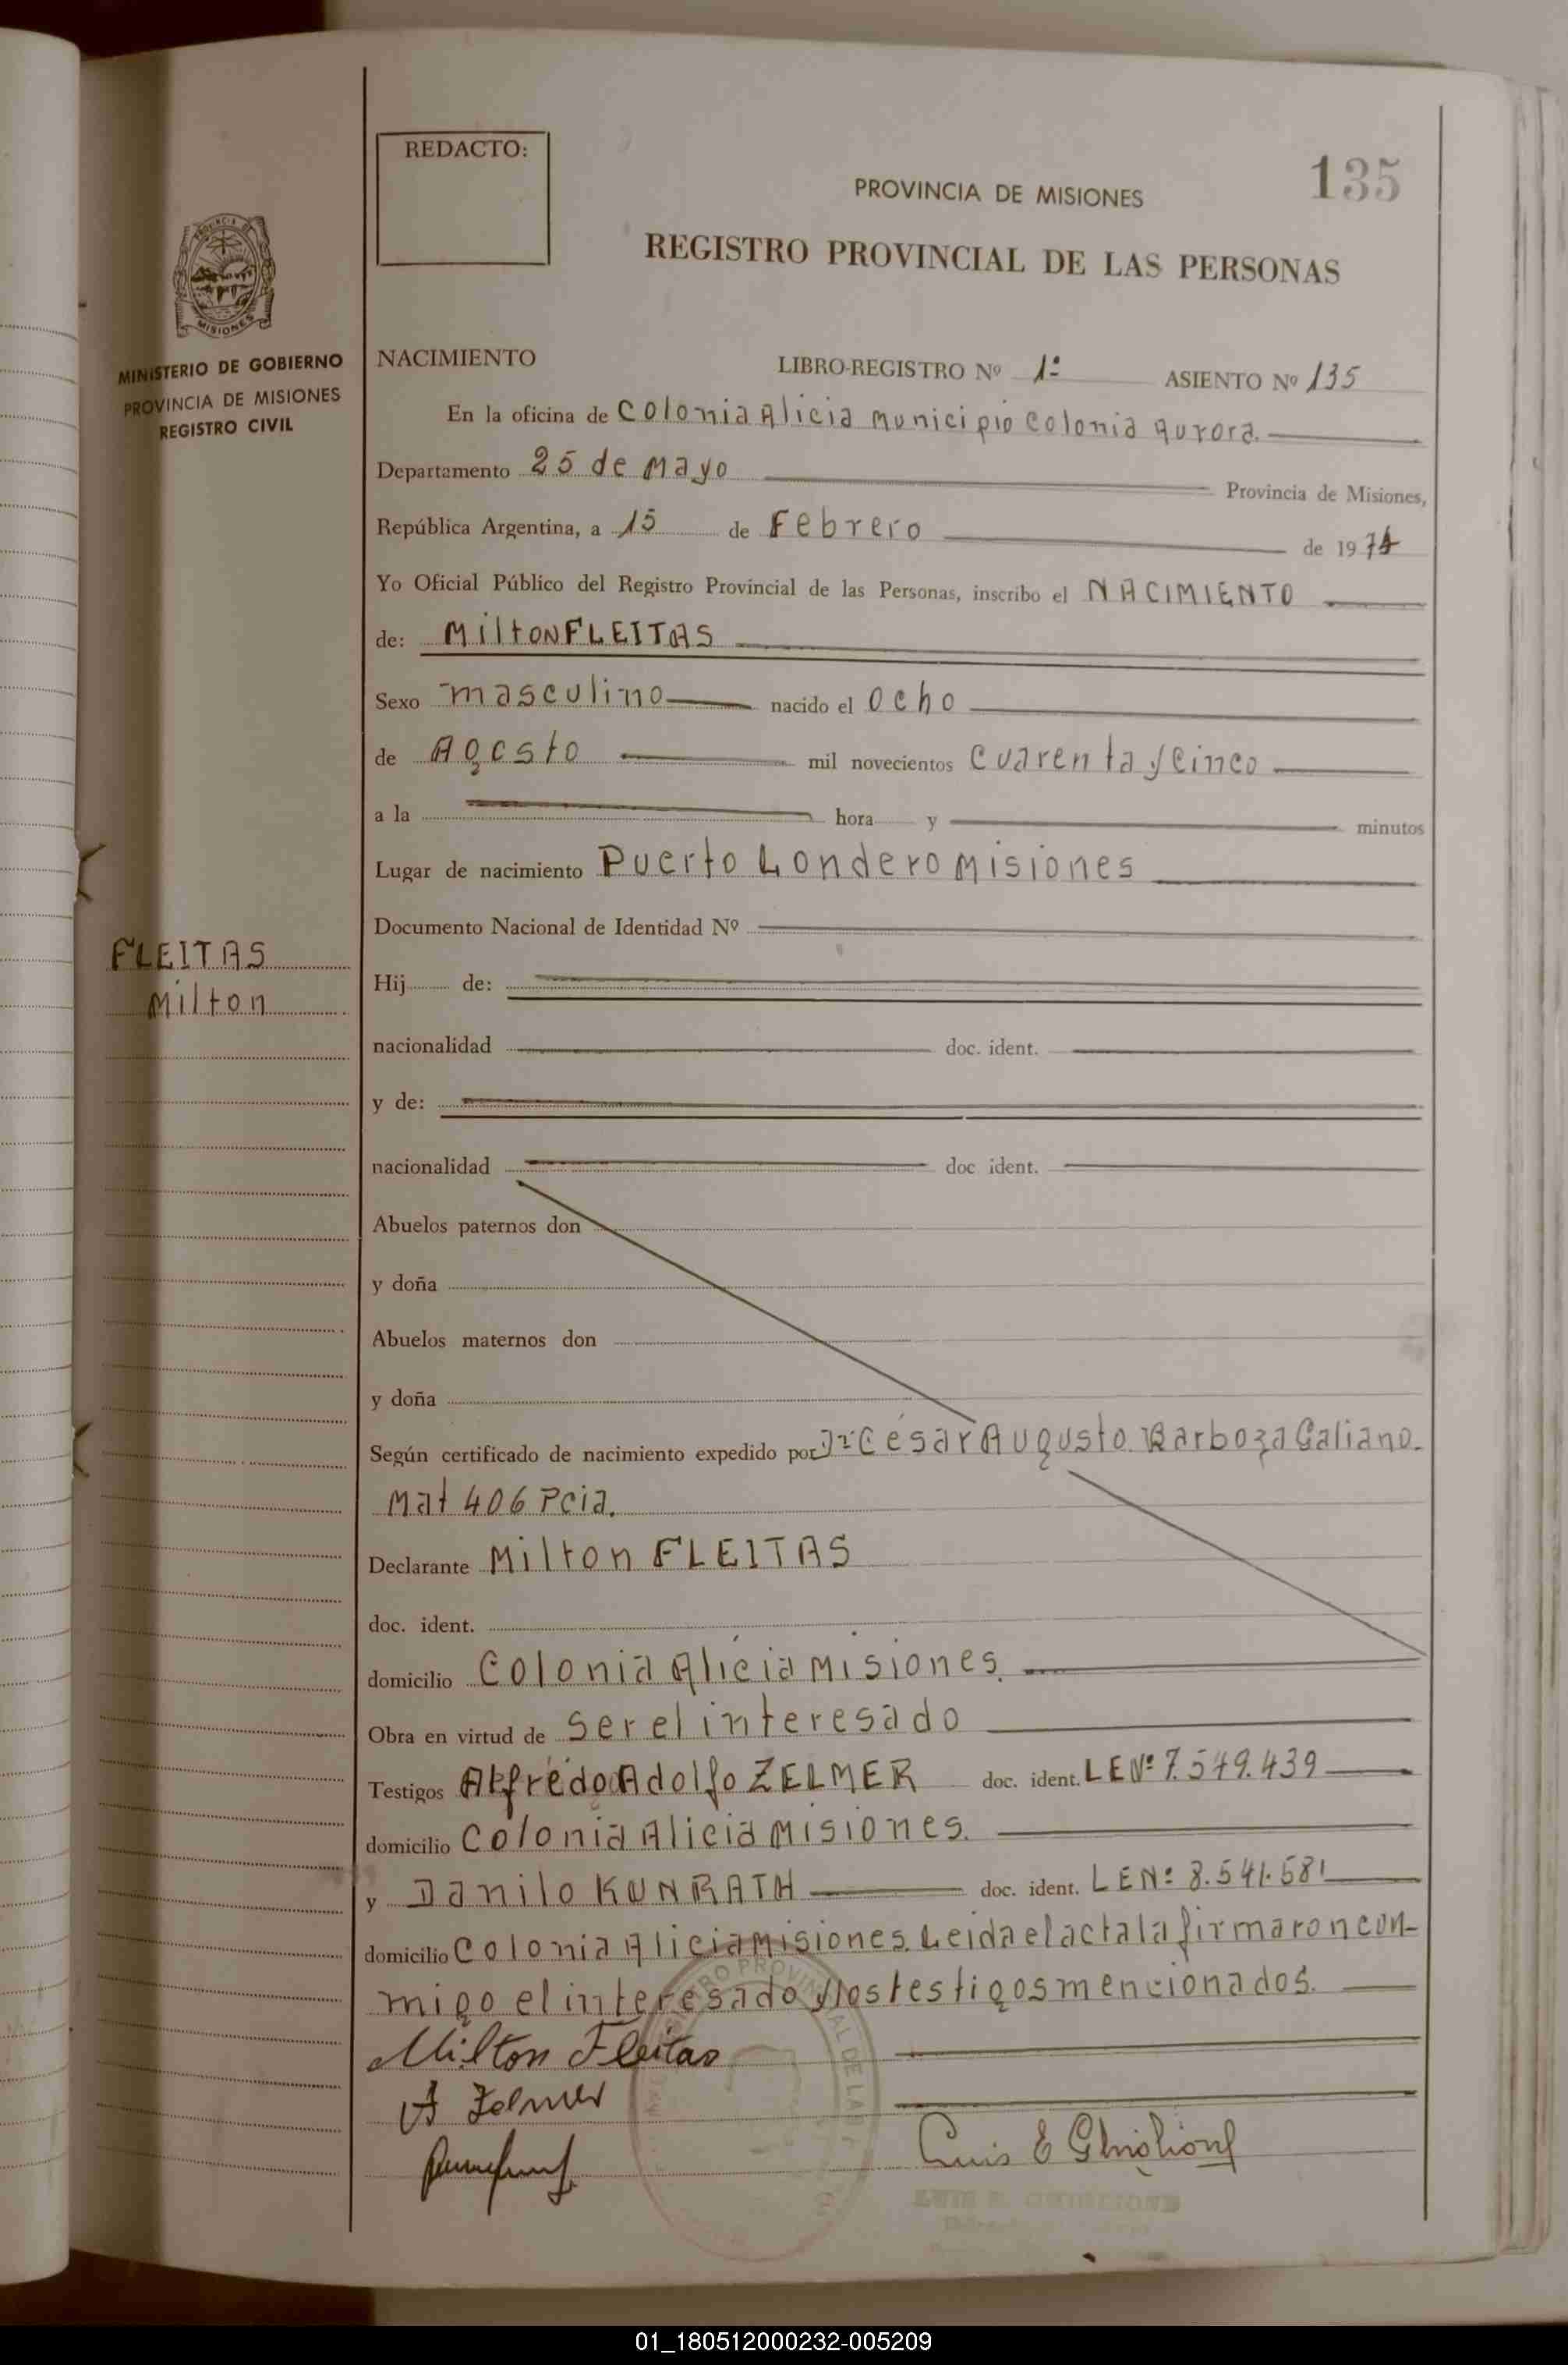 REDACTO:
135
PROVINCIA DE MISIONES
REGISTRO PROVINCIAL DE LAS PERSONAS
PROVINCIA DE
MISIONES
MINISTERIO DE GOBIERNO
PROVINCIA DE MISIONES
REGISTRO CIVIL
NACIMIENTO LIBRO-REGISTRO Nº 1º ASIENTO Nº 135
En la oficina de Colonia Alicia Municipio Colonia Aurora.
Departamento 25 de Mayo Provincia de Misiones,
República Argentina, a 15 de Febrero de 1974
Yo Oficial Público del Registro Provincial de las Personas, inscribo el NACIMIENTO
de: Milton FLEITAS
Sexo masculino nacido el Ocho
de Agosto mil novecientos Cuarenta y Cinco
a la hora y minutos
Lugar de nacimiento Puerto Londero Misiones
Documento Nacional de Identidad Nº
FLEITAS
Milton
Hij de:
nacionalidad doc. ident.
y de:
nacionalidad doc ident.
Abuelos paternos don
y doña
Abuelos maternos don
y doña
Según certificado de nacimiento expedido por Dr Cesar Augusto Barboza Galiano.
Mat 406 Pcia.
Declarante Milton FLEITAS
doc. ident.
domicilio Colonia Alicia Misiones.
Obra en virtud de ser el interesado
Testigos Alfredo Adolfo ZELMER doc. ident. LE Nº 7.549.439
domicilio Colonia Alicia Misiones.
y Danilo KUNRATH doc. ident. LE Nº 8.541.581
domicilio Colonia Alicia Misiones. Leida el acta la firmaron con-
migo el interesado y los testigos mencionados.
Milton Fleitas
A Zelmer
Luis E Ghiglione
LUIS E. GHIGLIONE
01_180512000232-005209